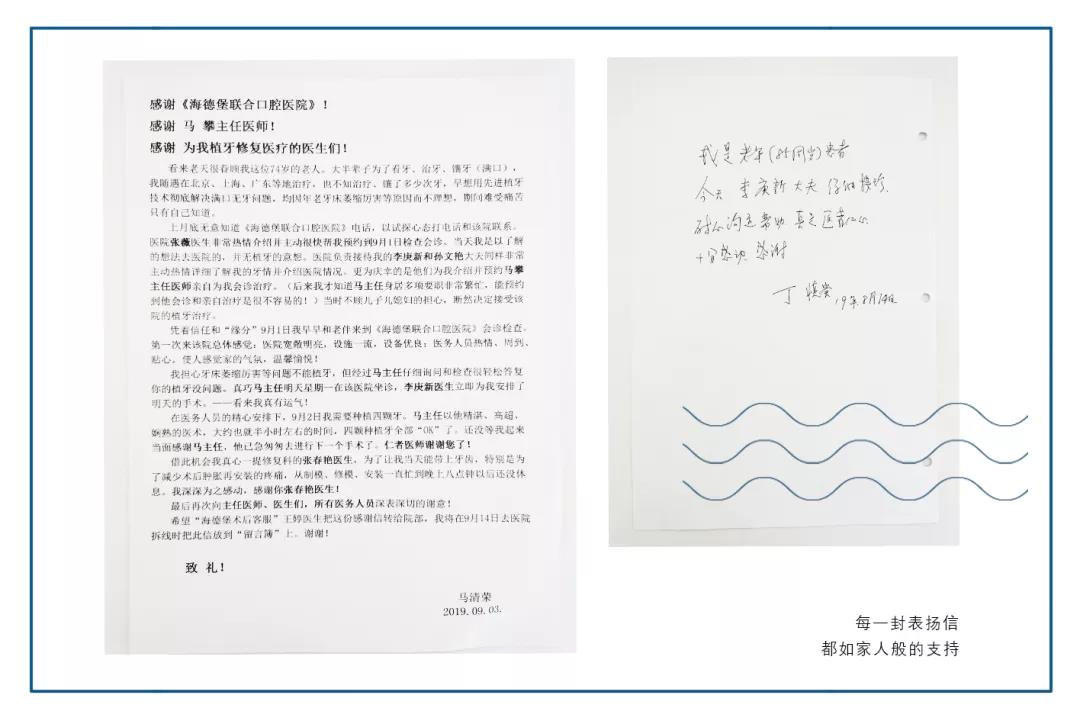 感谢《海德堡联合口腔医院》!
感谢 马 攀主任医师!
感谢 为我植牙修复医疗的医生们!
看来老天很眷顾我这位74岁的老人。大半辈子为了看牙、治牙、镶牙(满口),
我随遇在北京、上海、广东等地治疗,也不知治疗、镶了多少次牙,早想用先进植牙
技术彻底解决满口无牙问题,均因年老牙床萎缩厉害等原因而不理想,期间难受痛苦
只有自己知道。
上月底无意知道《海德堡联合口腔医院》电话,以试探心态打电话和该院联系。
医院张薇医生非常热情介绍并主动很快帮我预约到9月1日检查会诊。当天我是以了解
的想法去医院的,并无植牙的意想。医院负责接待我的李庚新和孙文艳大夫同样非常
主动热情详细了解我的牙情并介绍医院情况。更为庆幸的是他们为我介绍并预约马攀
主任医师亲自为我会诊治疗。(后来我才知道马主任身居多项要职非常繁忙,能预约
到他会诊和亲自治疗是很不容易的!)当时不顾儿子儿媳妇的担心,断然决定接受该
院的植牙治疗。
凭着信任和“缘分”9月1日我早早和老伴来到《海德堡联合口腔医院》会诊检查。
第一次来该院总体感觉:医院宽敞明亮,设施一流,设备优良;医务人员热情、周到、
贴心。使人感觉家的气氛,温馨愉悦!
我担心牙床萎缩厉害等问题不能植牙,但经过马主任仔细询问和检查很轻松答复
你的植牙没问题。真巧马主任明天星期一在该医院坐诊,李庚新医生立即为我安排了
明天的手术。——看来我真有运气!
在医务人员的精心安排下,9月2日我需要种植四颗牙。马主任以他精湛、高超、
娴熟的医术,大约也就半小时左右的时间,四颗种植牙全部“OK”了。还没等我起来
当面感谢马主任,他已急匆匆去进行下一个手术了。仁者医师谢谢您了!
借此机会我真心一提修复科的张春艳医生,为了让我当天能带上牙齿,特别是为
了减少术后肿胀再安装的疼痛,从制模、修模、安装一直忙到晚上八点钟以后还没休
息。我深深为之感动,感谢你张春艳医生!
最后再次向主任医师、医生们,所有医务人员深表深切的谢意!
希望“海德堡术后客服”王婷医生把这份感谢信转给院部,我将在9月14日去医院
拆线时把此信放到“留言簿”上。谢谢!
致 礼!
马清荣
2019.09.03.
我是老年(85周岁)患者
今天 李庚新大夫 仔细接诊
耐心沟通帮助 真是医者仁心
十分感谢 感谢
丁 19年8月14日
每一封表扬信
都如家人般的支持